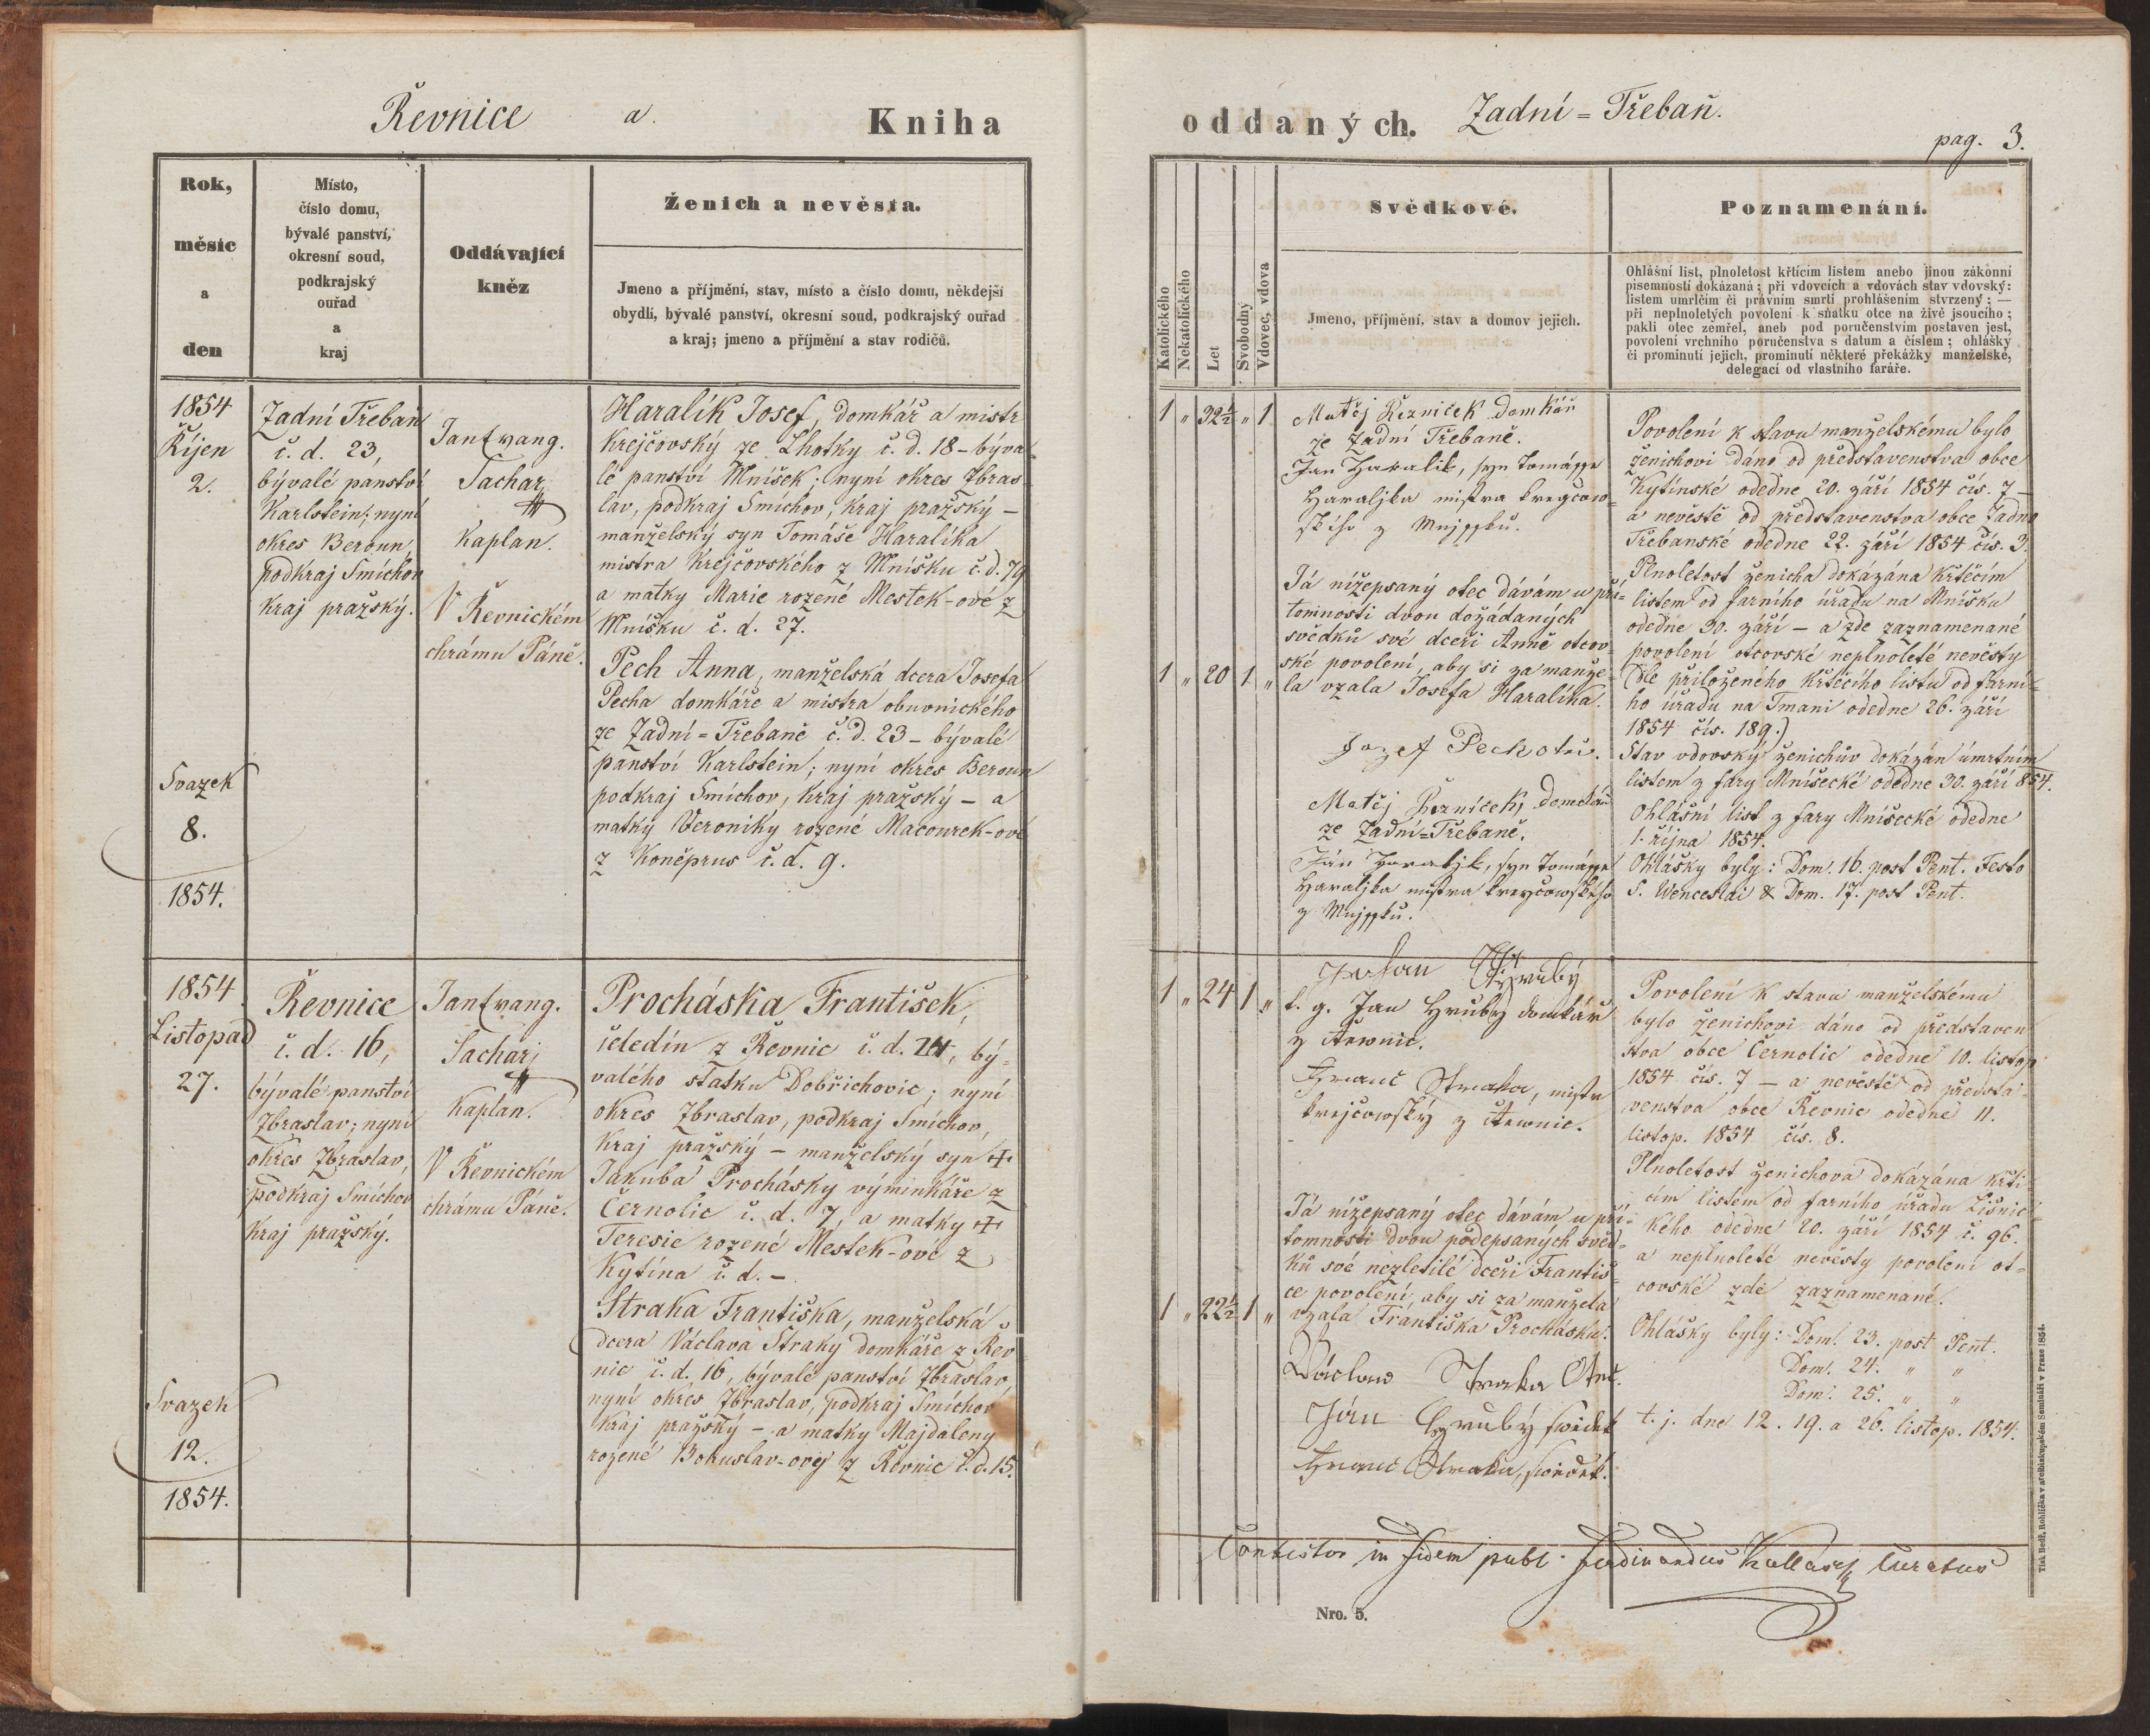 Řevnice a. Kniha
oddaných. Zadní=Třebaň.
pag. 3.
Rok,
měsíc
a
den
Místo,
číslo domu,
bývalé panství,
okresní soud,
podkrajský
ouřad
a
kraj
Oddávající
kněz
Ženich a nevěsta.
Jmeno a příjmění, stav, místo a číslo domu, někdejší
obydlí, bývalé panství, okresní soud, podkrajský ouřad
a kraj; jmeno a příjmění a stav rodičů.
Katolického
Nekatolického
Let
Svobodný
Vdovec, vdova
Svědkové.
Jmeno, příjmění, stav a domov jejich.
Poznamenání.
Ohlášní list, plnoletost křtícím listem anebo jinou zákonní
písemností dokázaná; při vdovcích a vdovách stav vdovský:
listem umrlčím či právním smrti prohlášením stvrzený; —
při neplnoletých povolení k sňatku otce na živě jsoucího;
pakli otec zemřel, aneb pod poručenstvím postaven jest,
povolení vrchního poručenstva s datum a číslem; ohlášky
či prominutí jejich, prominutí některé překážky manželské,
delegací od vlastního faráře.
1854
Říjen
2.
Svazek
8.
1854.
Zadní Třebaň
č. d. 23,
bývalé panství
Karlstein; nyní
okres Beroun,
podkraj Smíchov
kraj pražský.
Jan Evang.
Sachar
Kaplan.
V Řevnickém
chrámu Páně.
Haralík Josef, domkář a mistr
krejčovský ze Lhotky č. d. 18 – býva-
lé panství Mníšek; nyní okres Zbras-
lav, podkraj Smíchov, kraj pražský –
manželský syn Tomáše Haralíka
mistra krejčovského z Mníšku č. d. 79
a matky Marie rozené Mestek-ové z
Mníšku č. d. 27.
Pech Anna, manželská dcera Josefa
Pecha domkáře a mistra obuvnického
ze Zadní=Třebaně č. d. 23 – bývalé
panství Karlstein; nyní okres Beroun
podkraj Smíchov, kraj pražský – a
matky Veroniky rozené Macourek-ové
z Koněprus č. d. 9.
1 " 32½ " 1
1 " 20 1 "
Matěj Řezniček domkář
ze Zadní Třebaně.
Jan Haralik, syn Tomásse
Haraljka mistra kregčow-
ského z Mnjssku.
Já nížepsaný otec dávám u pří-
tomnosti dvou dožádaných
svědků své dceři Anně otcov-
ské povolení, aby si za manže-
la vzala Josefa Haralíka.
Jozef Pech otec.
Matěj Řezníček, domkář
ze Zadní=Třebaně.
Ján Haraljk, syn Tomásse
Haraljka mistra kreyčowského
z Mnjssku.
Povolení k stavu manželskému bylo
ženichovi dáno od představenstva obce
Kytínské odedne 20. září 1854 čís. 7 –
a nevěstě od představenstva obce Zadno
Třebanské odedne 22. září 1854 čís. 3.
Plnoletost ženicha dokázána křtěcím
listem od farního úřadu na Mníšku
odedne 30. září – a zde zaznamenané
povolení otcovské neplnoleté nevěsty
(dle přiloženého křtěcího listu od farní-
ho úřadu na Tmani odedne 26. září
1854 čís. 189.)
Stav vdovský ženichův dokázán úmrtním
listem z fary Mníšecké odedne 30. září 854.
Ohlášní list z fary Mníšecké odedne
1. října 1854.
Ohlášky byly: Dom. 16. post Pent. Festo
S. Wenceslai & Dom. 17. post Pent.
1854
Listopad
27.
Svazek
12.
1854.
Řevnice
č. d. 16,
bývalé panství
Zbraslav; nyní
okres Zbraslav,
podkraj Smíchov
kraj pražský.
Jan Evang.
Sachar
Kaplan.
V Řevnickém
chrámu Páně.
Procháska František,
čeledín z Řevnic č. d. 24, bý-
valého statku Dobřichovic; nyní
okres Zbraslav, podkraj Smíchov,
kraj pražský – manželský syn +
Jakuba Prochásky výminkáře z
Černolic č. d. 7, a matky +
Teresie rozené Mestek-ové z
Kytína č. d. –
Straka Františka, manželská
dcera Václava Straky domkáře z Řev-
nic č. d. 16, bývalé panství Zbraslav,
nyní okres Zbraslav, podkraj Smíchov
kraj pražský – a matky Majdaleny
rozené Bohuslav-ovej z Řevnic č. d. 15.
1 " 24 1 "
1 " 22½ 1 "
Hrubý
t. g. Jan Hrubý domkář
z Řewnic.
Franc Straka, mistr
krejčowský z Řewnic.
Já nížepsaný otec dávám u pří-
tomnosti dvou podepsaných svěd-
ků své nezletilé dceři Františ-
ce povolení, aby si za manžela
vzala Františka Prochásku.
Wáclaw Straka Otec.
Ján Hrubý swědek
Franc Straka, swědek.
Povolení k stavu manželskému
bylo ženichovi dáno od představen
stva obce Černolic odedne 10. listop
1854 čís. 7 – a nevěstě od předsta-
venstva obce Řevnic odedne 11.
listop. 1854 čís. 8.
Plnoletost ženichova dokázána křti-
cím listem od farního úřadu Lišnic-
kého odedne 20. září 1854 č. 96.
a neplnoleté nevěsty povolení ot-
covské zde zaznamenané.
Ohlášky byly: Dom. 23. post Pent.
Dom. 24. " "
Dom. 25. " "
t. j. dne 12. 19. a 26. listop. 1854.
in fidem publ. Ferdinandus Curatus
Nro. 5.
Tisk Bedř. Rohlíčka v arcibiskupském Semináři v Praze 1854.